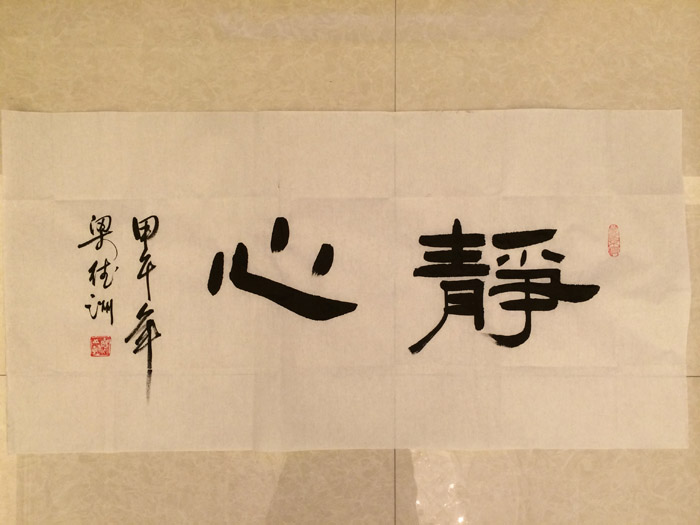 靜心
甲午年
梁佳洲